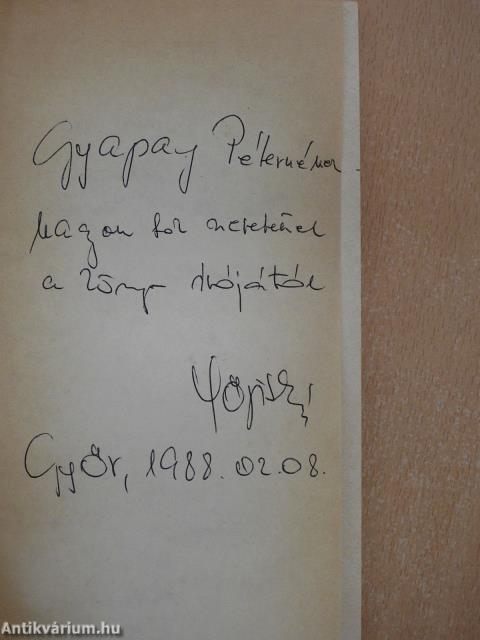 Gyapay Péternének
nagyon sok szeretettel
a könyv írójától
Győr, 1988.02.08.
Antikvárium.hu